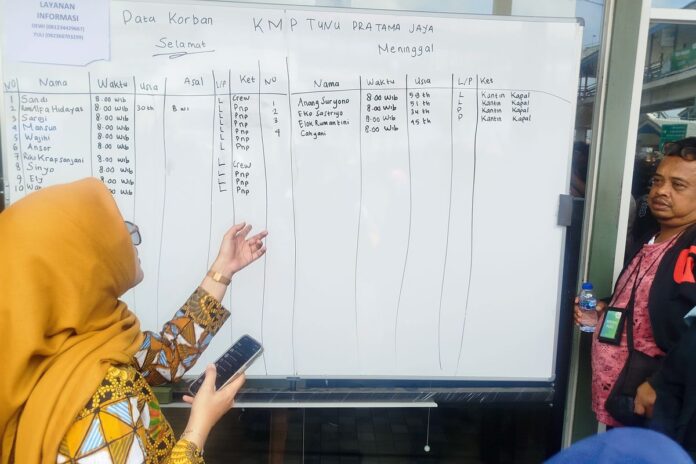 LAYANAN
INFORMASI
DEWI (081234429667)
YULI (082368703239)
Data Korban KMP TUNU PRATAMA JAYA
Selamat
NO Nama Waktu Usia Asal L/P Ket
1 Sandi 8.00 wib L Crew
2 Hidayas 8.00 wib 30 th L Pnp
3 Saroji 8.00 wib L Pnp
4 Mansun 8.00 wib L Pnp
5 Wajihi 8.00 wib L Pnp
6 Ansor 8.00 wib L Pnp
7 8.00 wib
8 Sinyo 8.00 wib L Crew
9 Ely 8.00 wib L Pnp
10 8.00 wib L Pnp
Meninggal
NO Nama Waktu Usia L/P Ket
1 Anang Suryono 8.00 wib L Kantin Kapal
2 Eko Sastriyo 8.00 wib 51 th L Kantin Kapal
3 Elok Rumantini 8.00 wib 34 th P Kantin Kapal
4 Cahyani 8.00 wib 45 th P Kantin Kapal